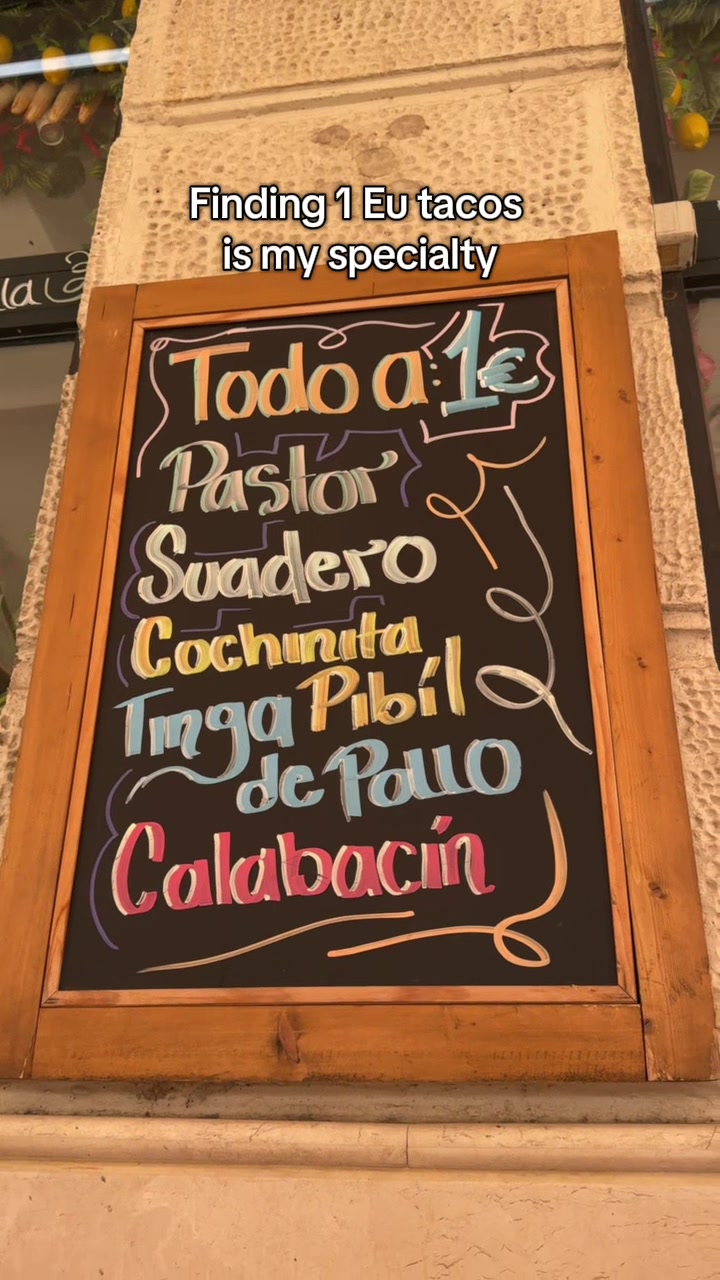 Finding 1 Eu tacos
is my specialty
la
Todo a: 1€
Pastor
Suadero
Cochinita
Pibíl
Tinga
de Pollo
Calabacín